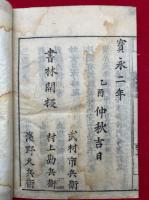 寳永二年
乙酉
仲秋吉日
書林開板
武村市兵衛
村上勘兵衛
濱野久兵衛